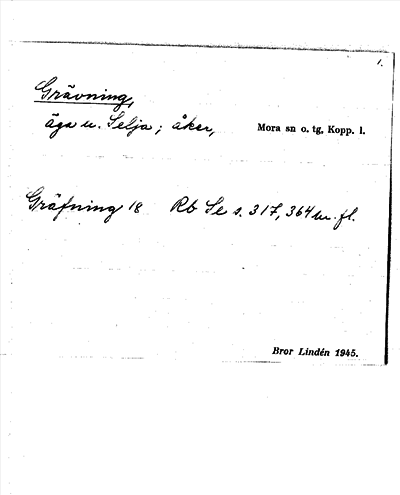 1.
Grävning,
äga u. Selja; åker, Mora sn o. tg, Kopp. l.
Gräfning 18 Rb Se s. 317, 364 m. fl.
Bror Lindén 1945.